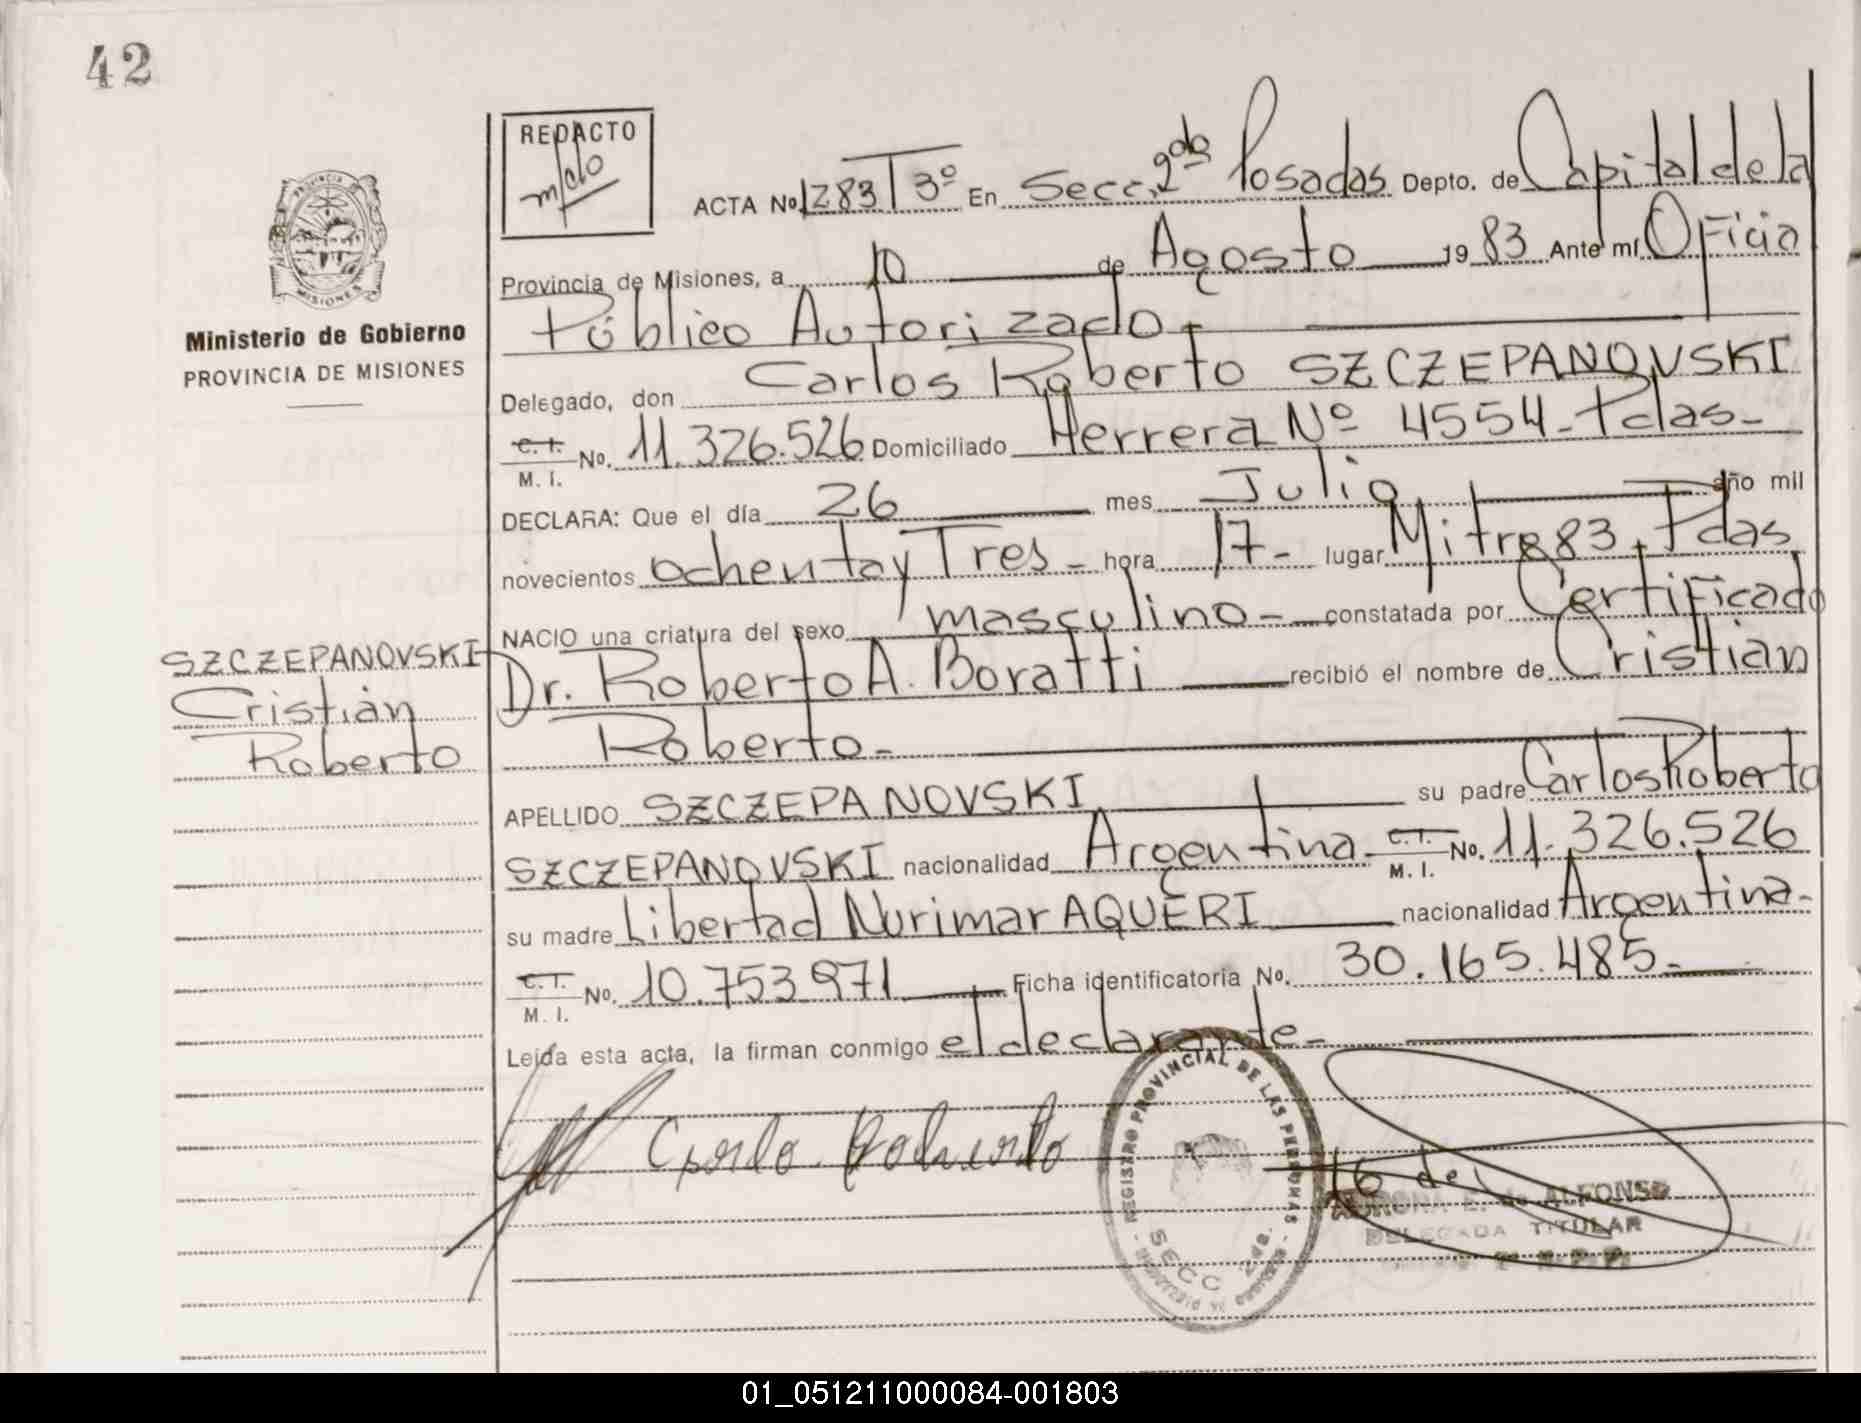 42
REDACTO
m/clo
ACTA No. 1283 T 3º En Secc. 2da Posadas Depto. de Capital de la
Provincia de Misiones, a 10 de Agosto 1983 Ante mí Oficia
Público Autorizado.
PROVINCIA
MISIONES
Ministerio de Gobierno
PROVINCIA DE MISIONES
Delegado, don Carlos Roberto SZCZEPANOVSKI
C. I.
M. I. No. 11.326.526 Domiciliado Herrera Nº 4554 - Pdas -
DECLARA: Que el día 26 mes Julio año mil
novecientos ochenta y Tres - hora 17 - lugar Mitre 83. Pdas
NACIO una criatura del sexo masculino - constatada por Certificado
SZCZEPANOVSKI
Cristián
Roberto
Dr. Roberto A. Boratti recibió el nombre de Cristián
Roberto -
APELLIDO SZCZEPANOVSKI su padre Carlos Roberto
SZCZEPANOVSKI nacionalidad Argentina - C. I.
M. I. No. 11.326.526
su madre Libertad Nurimar AQUERI nacionalidad Argentina -
C. I.
M. I. No. 10.753.971 Ficha identificatoria No. 30.165.485 -
Leída esta acta, la firman conmigo el declarante -
REGISTRO PROVINCIAL DE LAS PERSONAS
SECC 2da.
E. de ALFONSO
DELEGADA TITULAR
01_051211000084-001803